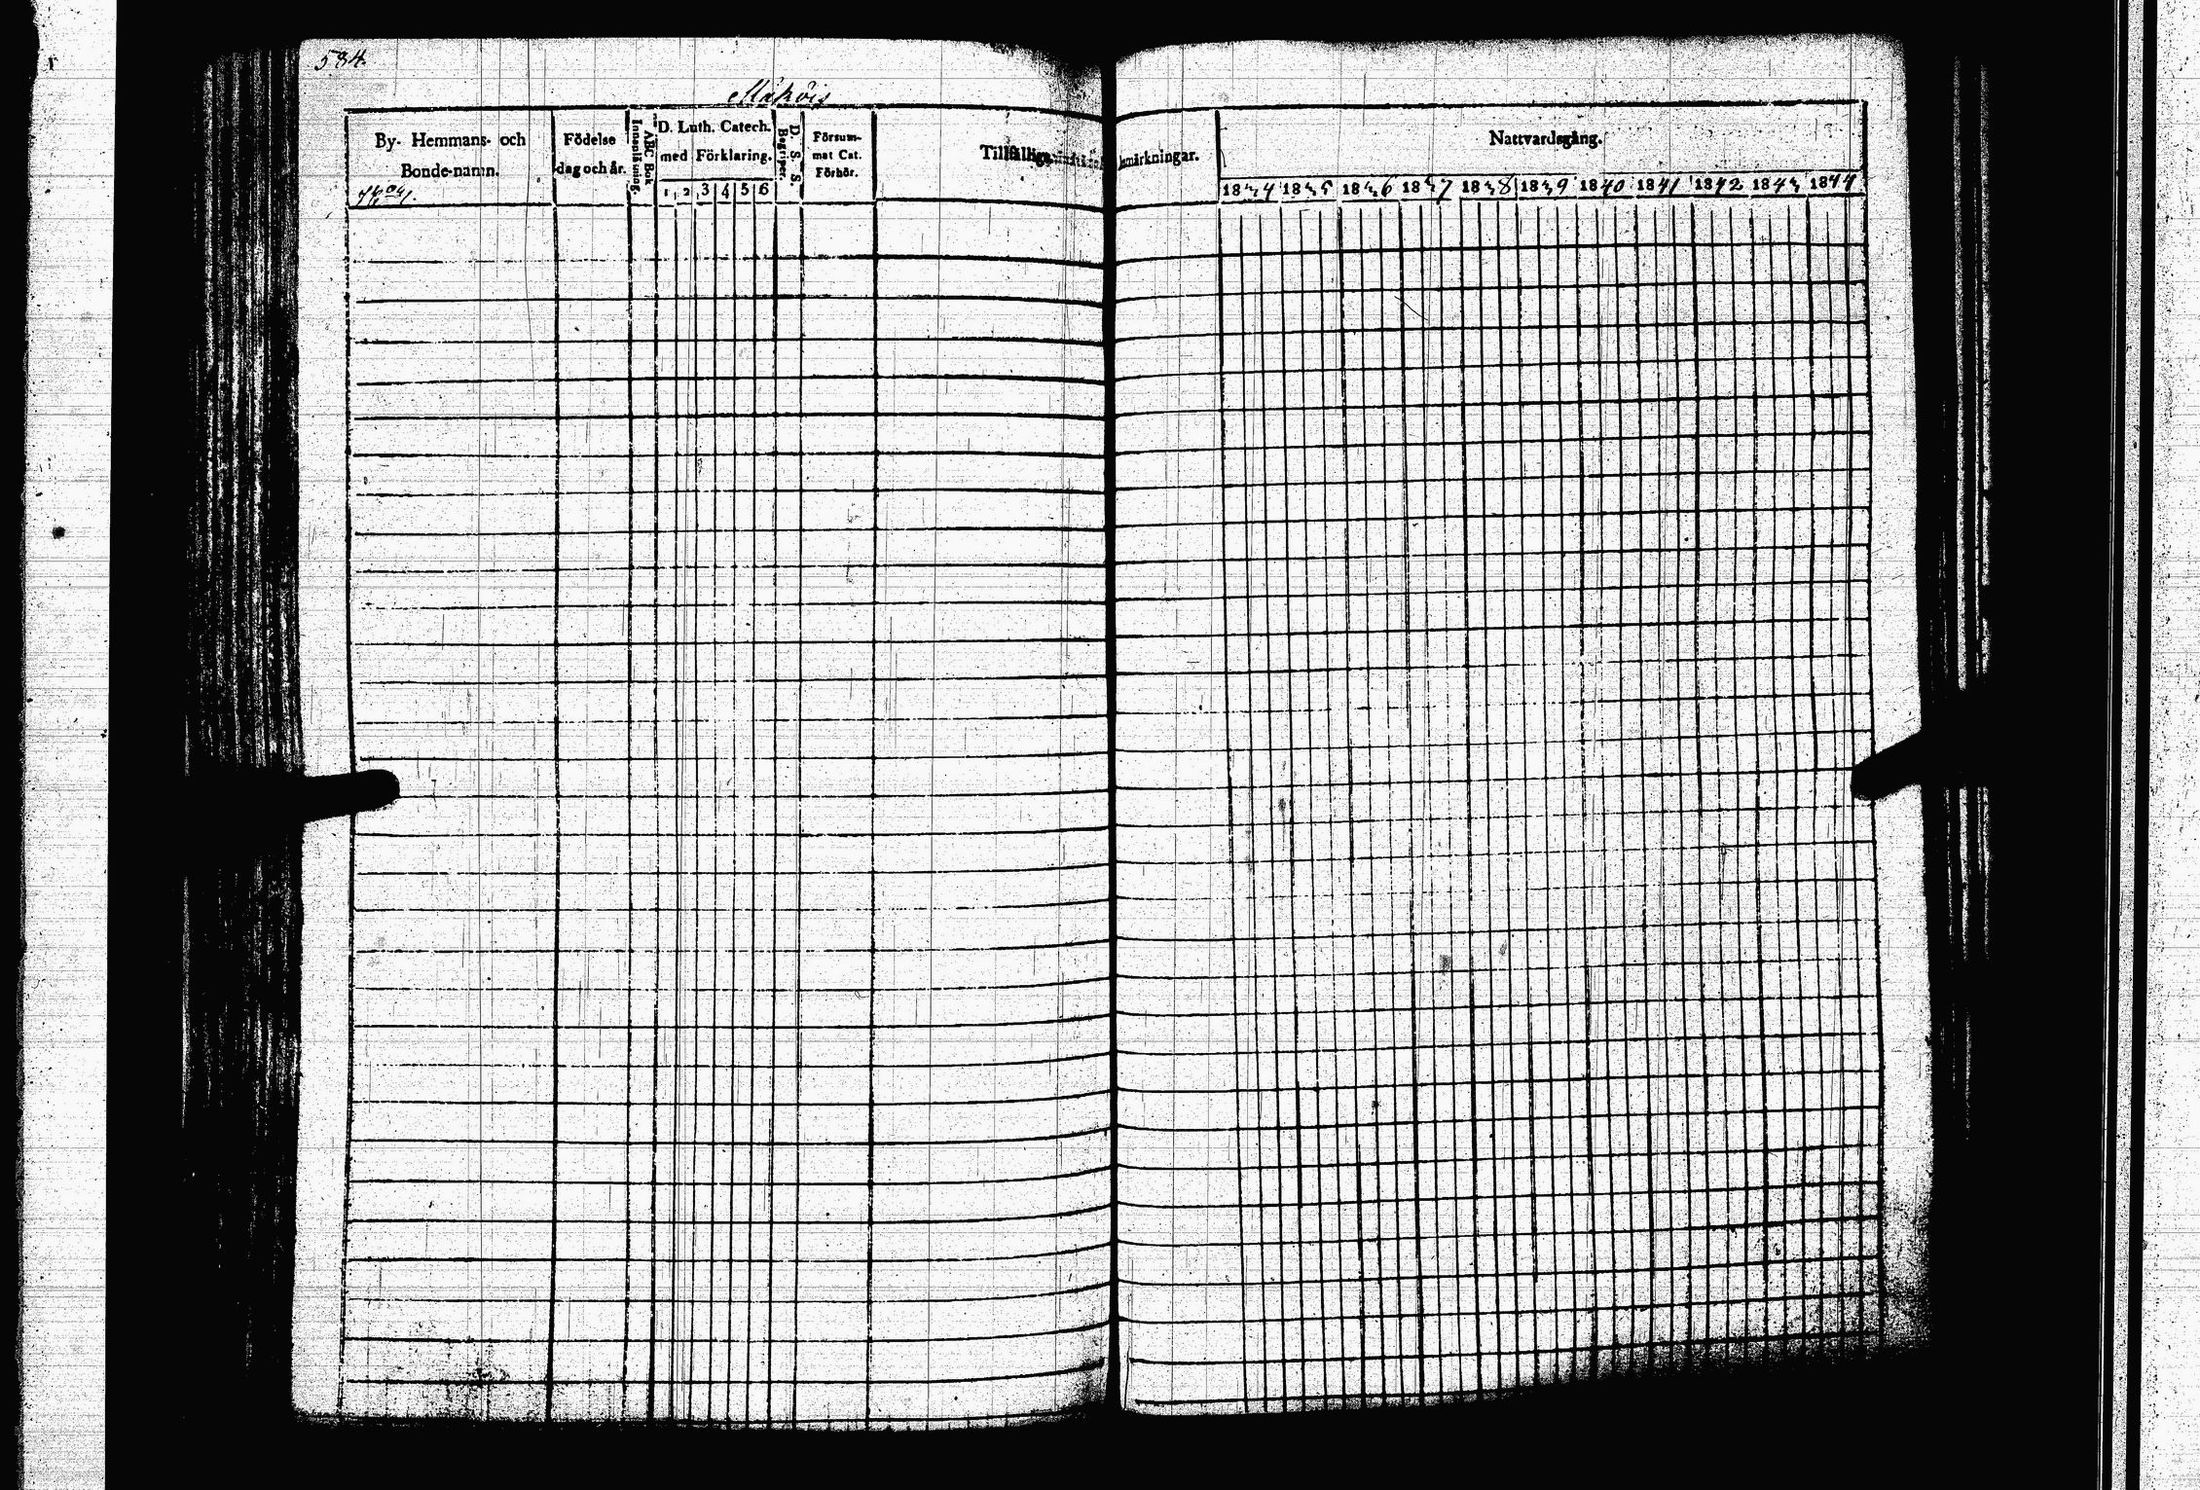 584
By- Hemmans- och Bonde-namn.
Födelse dag och år.
Innanläsning.
ABC Bok
D. Luth. Catech. med Förklaring.
1 2 3 4 5 6
D. S. S. Begriper.
Försummat Cat. Förhör.
Tillfälliga Anmärkningar.
Nattvardsgång.
1834 1835 1836 1837 1838 1839 1840 1841 1842 1843 1844